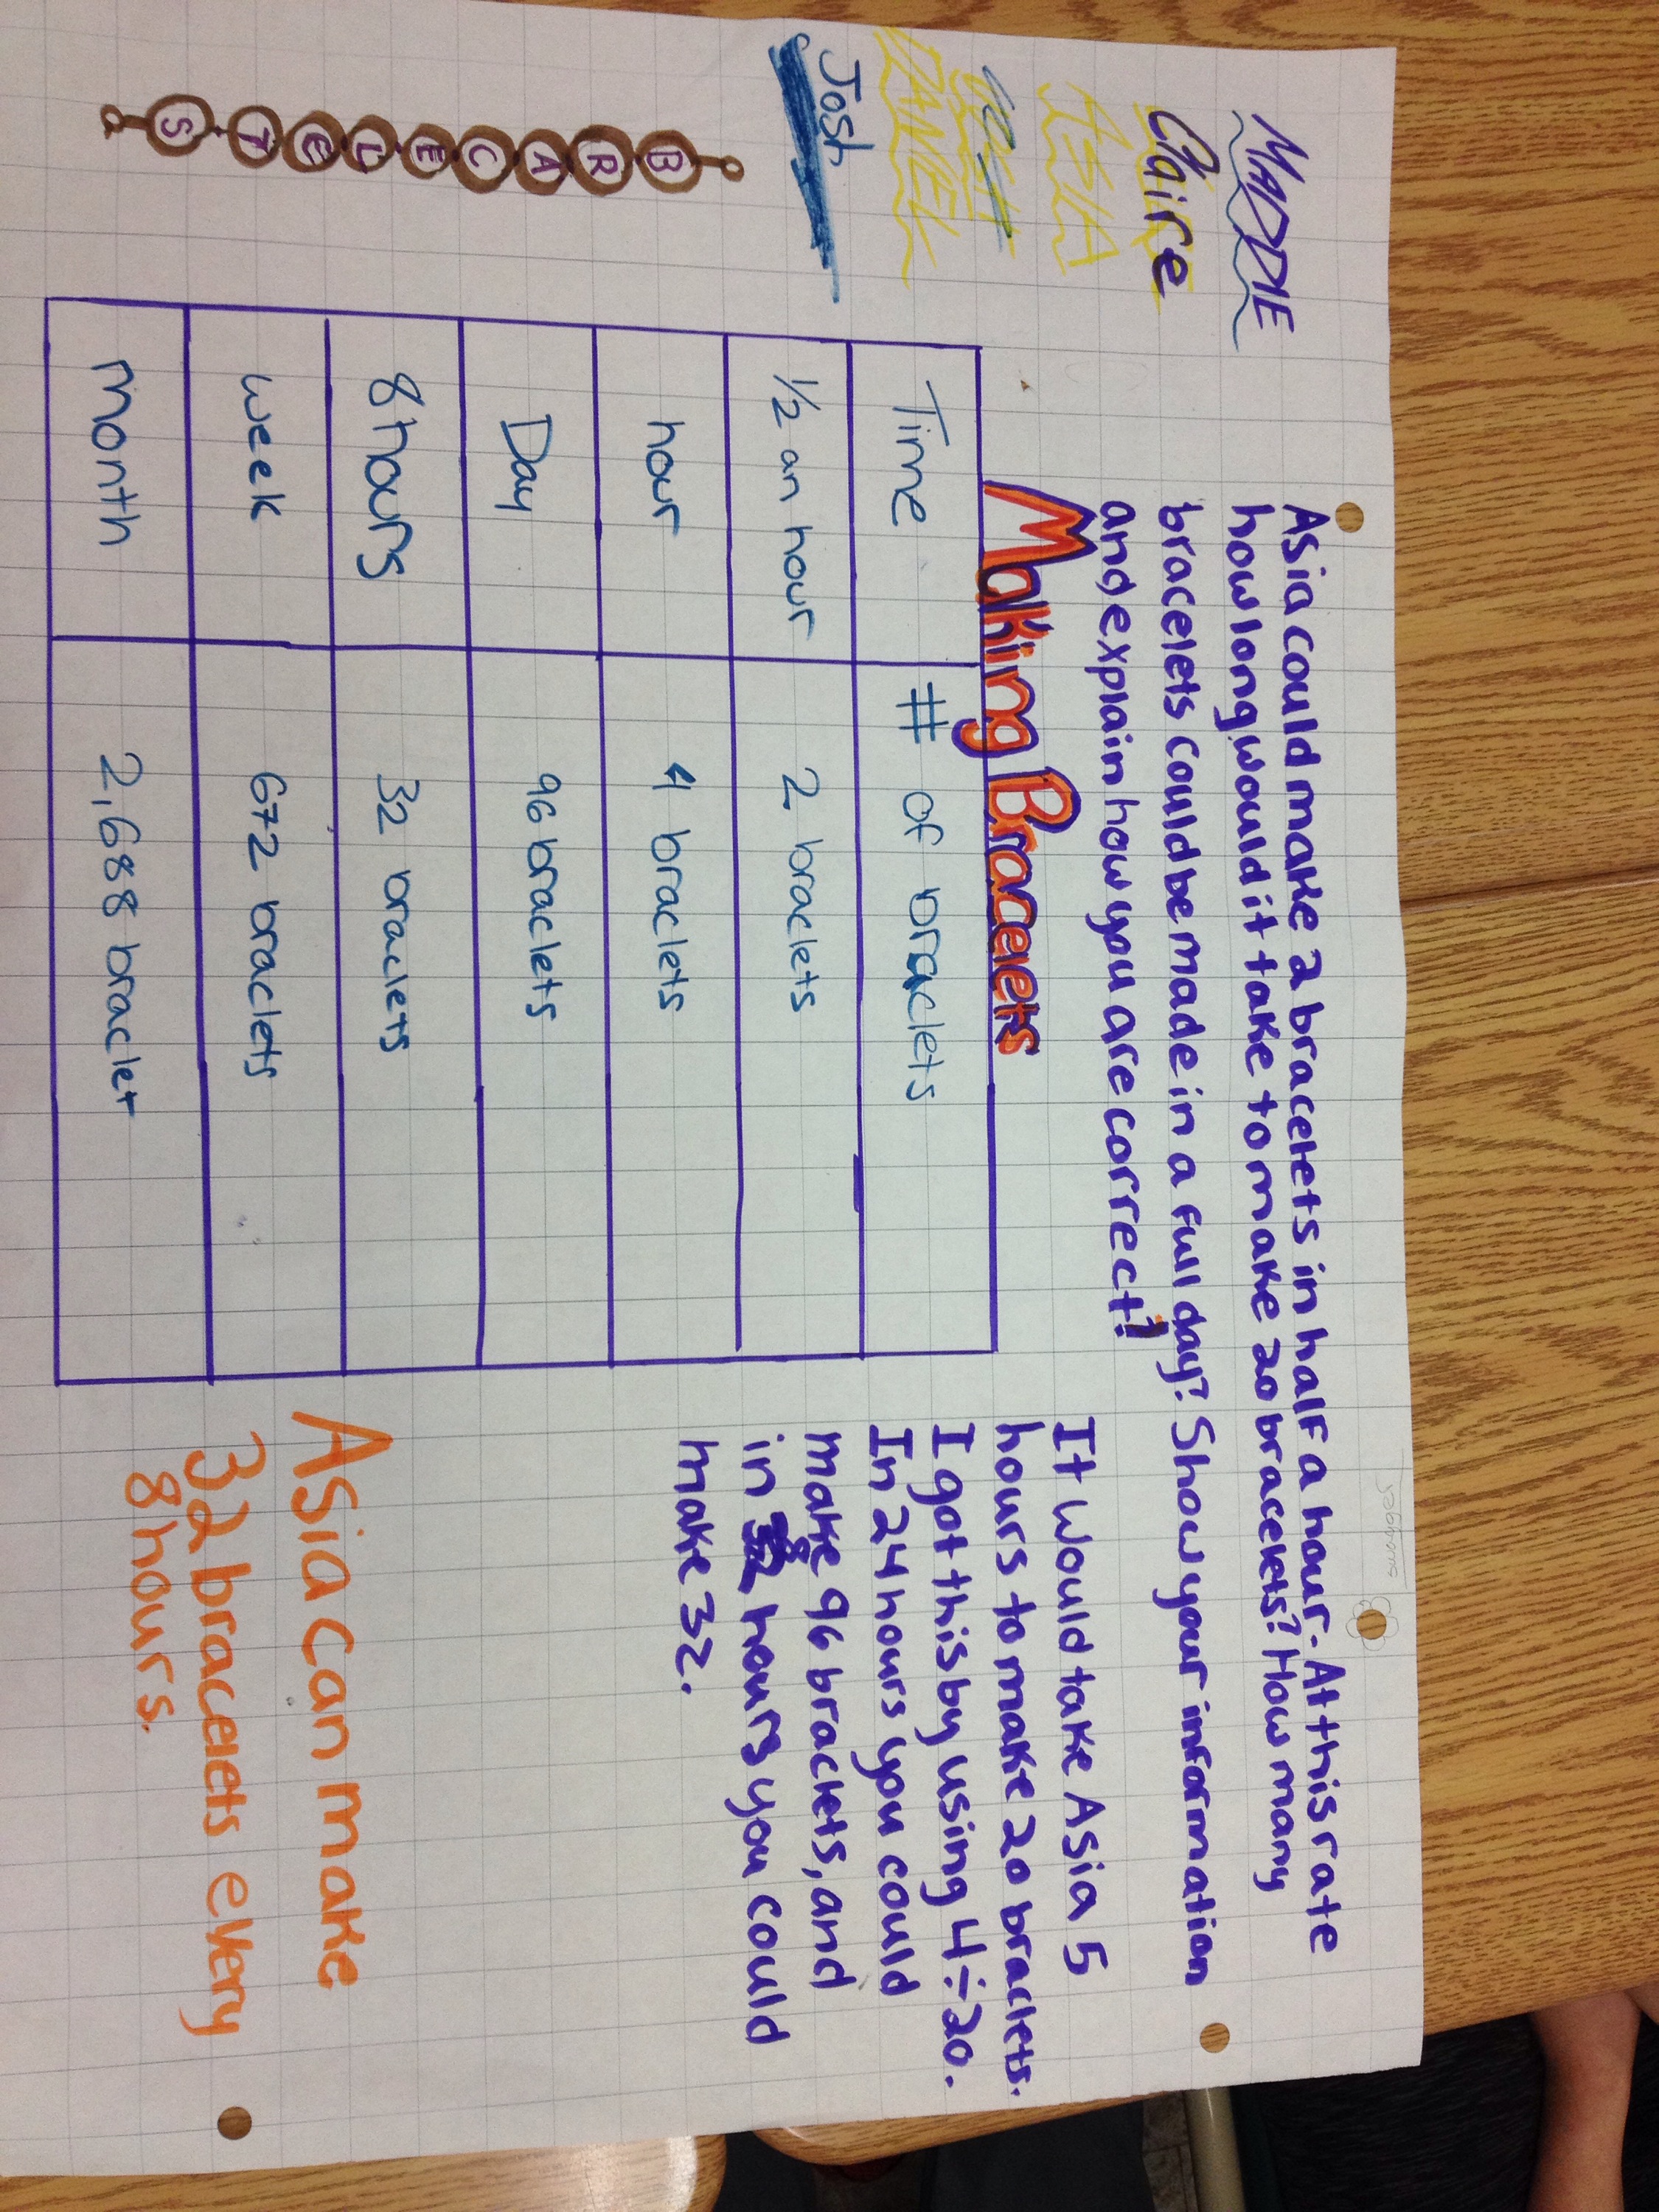 swagger
Asia could make 2 bracelets in half a hour. At this rate
how long would it take to make 20 bracelets? How many
bracelets could be made in a full day? Show your information
and explain how you are correct?
MADDIE
Claire
DANIEL
Josh
BRACELETS
Making Bracelets
Time # of braclets
1/2 an hour 2 braclets
hour 4 braclets
Day 96 braclets
8 hours 32 braclets
week 672 braclets
month 2,688 braclet
It would take Asia 5
hours to make 20 braclets.
I got this by using 4÷20.
In 24 hours you could
make 96 braclets, and
in 8 hours you could
make 32.
Asia can make
32 bracelets every
8 hours.